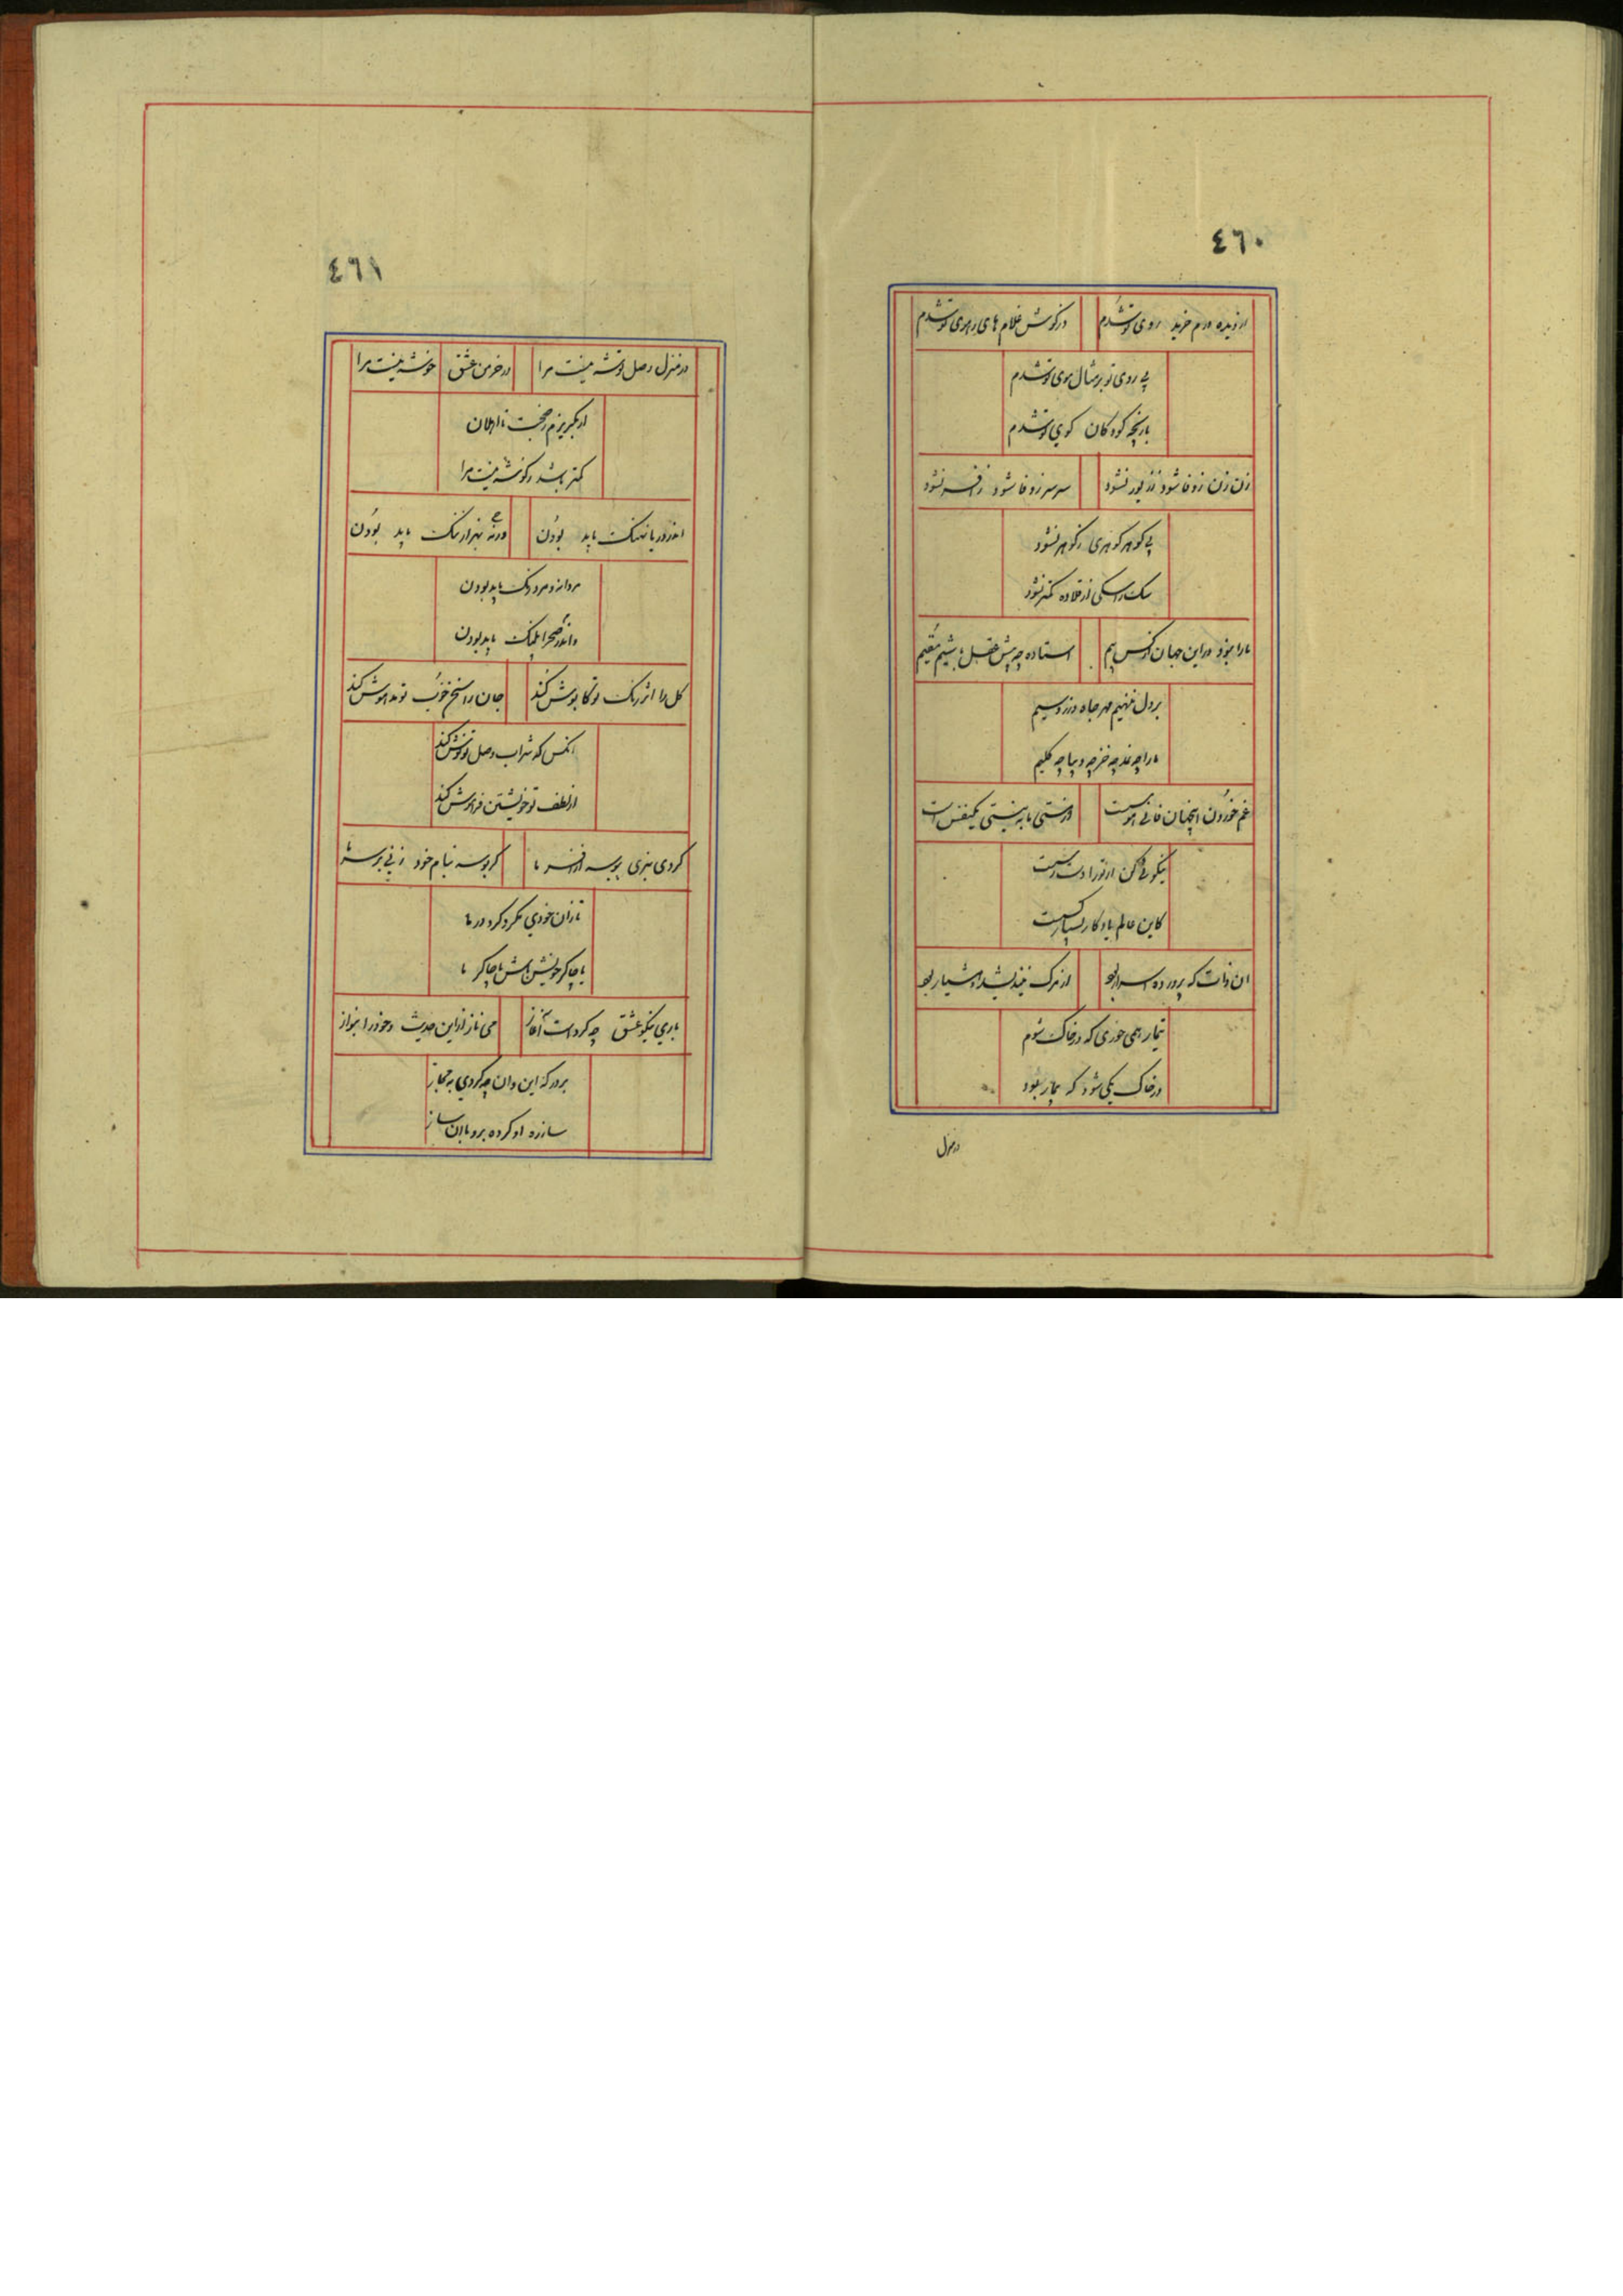 ٤٦٠
از دیده درم خرید روی تو شدم در گوش غلام های و هوی تو شدم
بی روی تو بر مثال موی تو شدم
بازیچه کودکان کوی تو شدم
زن زن ز وفا شود ز زیور نشود سر سر ز وفا شود ز افسر نشود
بی گوهر گوهری ز گوهر نشود
سگ را سگی از قلاده کمتر نشود
ما را نبود در این جهان از کس بیم استاده چه پیش عقل باشیم مقیم
بر دل ننهیم مهر جاه و زر و سیم
ما را چه غم چه خز چه دیبا چه گلیم
غم خوردن اینجهان فانی هوس است از هستی ما به نیستی یکنفس است
نیکوئی کن اگر تو را دست رس است
کاین عالم یادگار بسیار کس است
ان ذات که پرورده اسرار بود از مرگ نیندیشد و هشیار بود
تیمار همی خوری که در خاک شوم
در خاک یکی شود که تیمار بود
در منزل
٤٦١
در منزل وصل توشه نیست مرا در خرمن عشق خوشه نیست مرا
گر بگریزم ز صحبت نااهلان
کمتر باشد ز گوشه نیست مرا
اندر دریا نهنگ باید بودن ورنه بهزار ننگ باید بودن
مردانه و مرد رنگ باید بودن
واندر صحرا پلنگ باید بودن
کل را اثر رنگ تو کل پوش کند جان را سخن خوب تو مدهوش کند
انکس که شراب وصل تو نوش کند
از لطف تو خویشتن فراموش کند
کردی نبزی بوسه از افسر ما گر بوسه بنام خود زنی بر سر ما
تا زان خودی مگرد گرد در ما
یا چاکر خویش باش یا چاکر ما
باری بنگر عشق چه کرد است آغاز می ناز از این حدیث و خود را بنواز
بر درگه این و ان چه گردی به مجاز
ساز ره او کرده برو با ان ساز